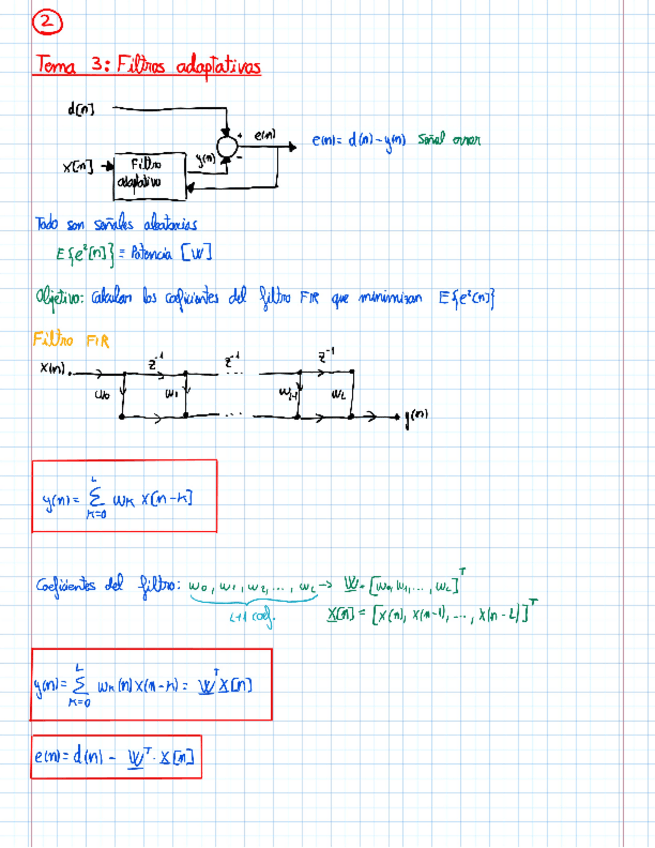 2
Tema 3: Filtros adaptativos
d[n]
+ e(n)
e(n) = d(n) - y(n) Señal error
x[n] Filtro adaptativo y(n) -
Todo son señales aleatorias
E{e²[n]} = Potencia [W]
Objetivo: Calcular los coeficientes del filtro FIR que minimizan E{e²(n)}
Filtro FIR
x(n) z⁻¹ z⁻¹ ... z⁻¹
w₀ w₁ w_L-1 w_L
... y(n)
y(n) = Σ_{k=0}^{L} wₖ x[n-k]
Coeficientes del filtro: w₀, w₁, w₂, ..., w_L → W = [w₀, w₁, ..., w_L]ᵀ
L+1 coef. X[n] = [x(n), x(n-1), ..., x(n-L)]ᵀ
y(n) = Σ_{k=0}^{L} wₖ(n) x(n-k) = Wᵀ X[n]
e(n) = d(n) - Wᵀ · X[n]